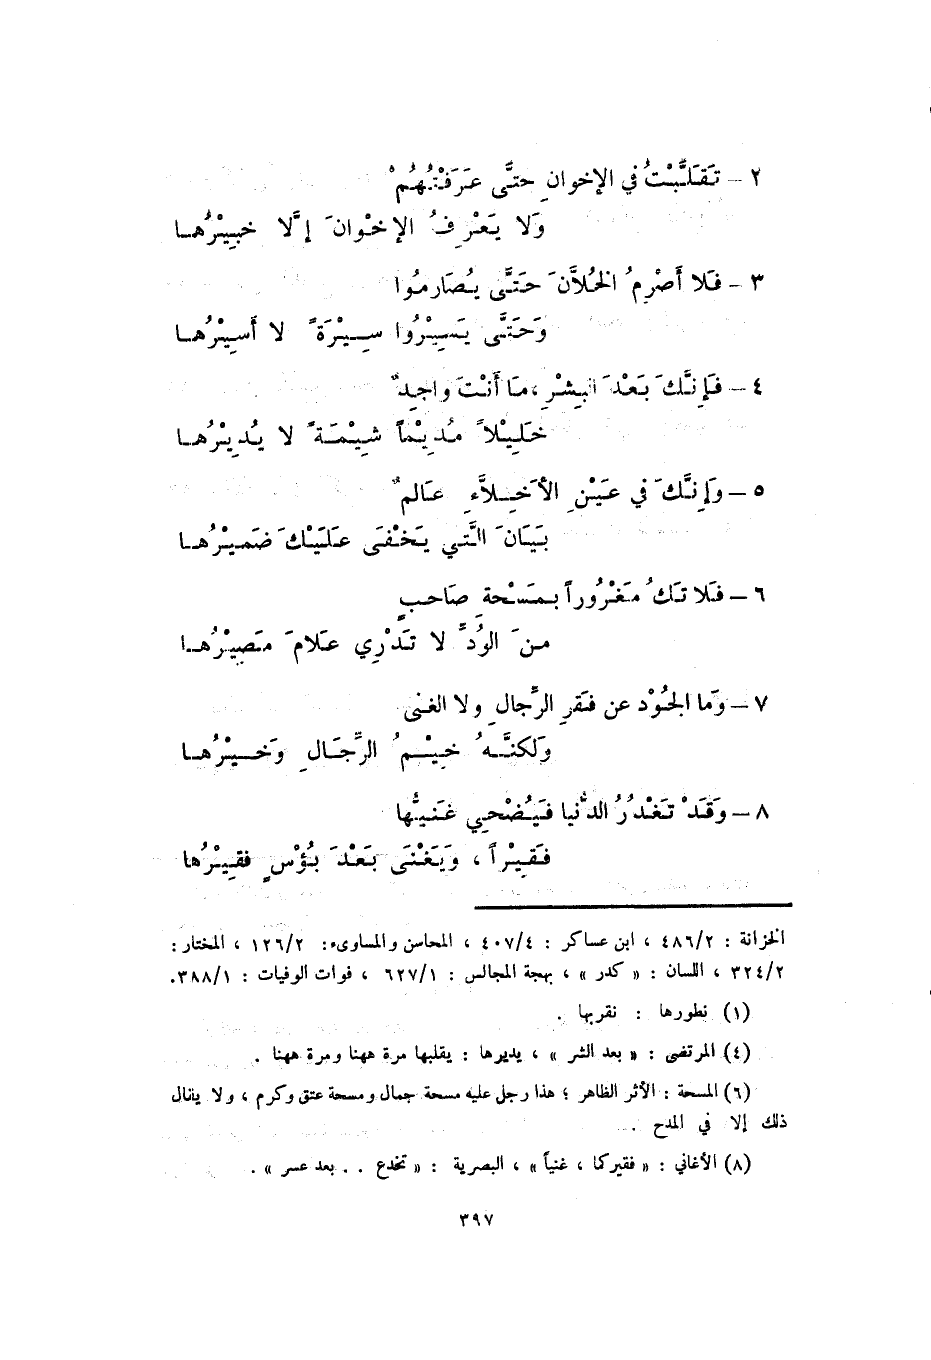 ٢ – تَقَلَّبْتُ في الإخوانِ حتَّى عَرَفْتُهُمْ
وَلا يَعْرِفُ الإخْوانَ إلَّا خبِيْرُهـا
٣ – فَلا أَصْرِمُ الخُلاَّنَ حَتَّى يُصَارِمُوا
وَحَتَّى يَسِيْرُوا سِيْرَةً لا أَسِيْرُهـا
٤ – فَإِنَّكَ بَعْدَ البِشْرِ، مَا أَنْتَ واجِدٌ
خَلِيْلاً مُدِيْماً شِيْمَةً لا يُدِيْرُهـا
٥ – وَإِنَّكَ في عَيْنِ الأَخِلاَّءِ عَالمٌ
بَيَانَ الَّتي يَخْفَى عَلَيْكَ ضَمِيْرُهـا
٦ – فَلا تَكُ مَغْرُوراً بِمَسْحَةِ صَاحبٍ
مِنَ الوُدِّ لا تَدْرِي عَلامَ مَصِيْرُهـا
٧ – وَما الجُوْد عن فَقرِ الرِّجالِ ولا الغنى
وَلكنَّـهُ خِيْـمُ الرِّجَـالِ وَخَـيْرُهـا
٨ – وَقَدْ تَغْدُرُ الدُّنيا فَيُضْحِي غَنيُّها
فَقِيْراً ، وَيَغْنَى بَعْدَ بُؤْسٍ فقِيْرُها
الخزانة : ٤٨٦/٢ ، ابن عساكر : ٤٠٧/٤ ، المحاسن والمساوىء: ١٢٦/٢ ، المختار :
٣٢٤/٢ ، اللسان : « كدر » ، بهجة المجالس : ٦٢٧/١ ، فوات الوفيات : ٣٨٨/١.
(١) نطورها : نقربها .
(٤) المرتضى : « بعد الشر » ، يديرها : يقلبها مرة ههنا ومرة ههنا .
(٦) المسحة : الأثر الظاهر ؛ هذا رجل عليه مسحة جمال ومسحة عتق وكرم ، ولا يقال
ذلك إلا في المدح .
(٨) الأغاني : « فقيركما ، غنياً » ، البصرية : « تخدع . . بعد عسر » .
٣٩٧